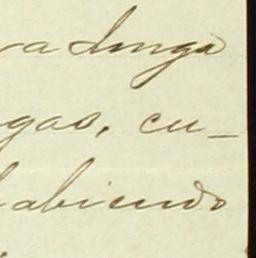 ra longa
gas, cu-
habiendo